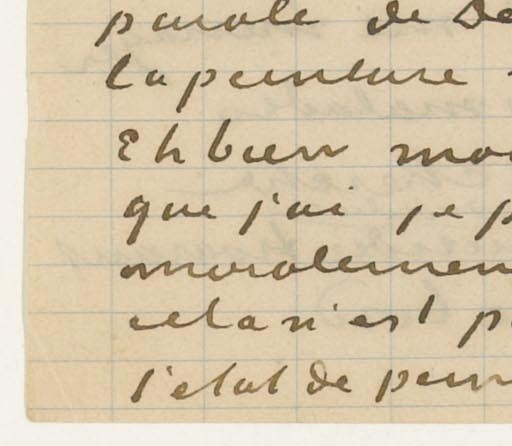 parole de De
la peinture
Eh bien mo
que j'ai je p
moralemen
cela n'est p
l'etat de pein